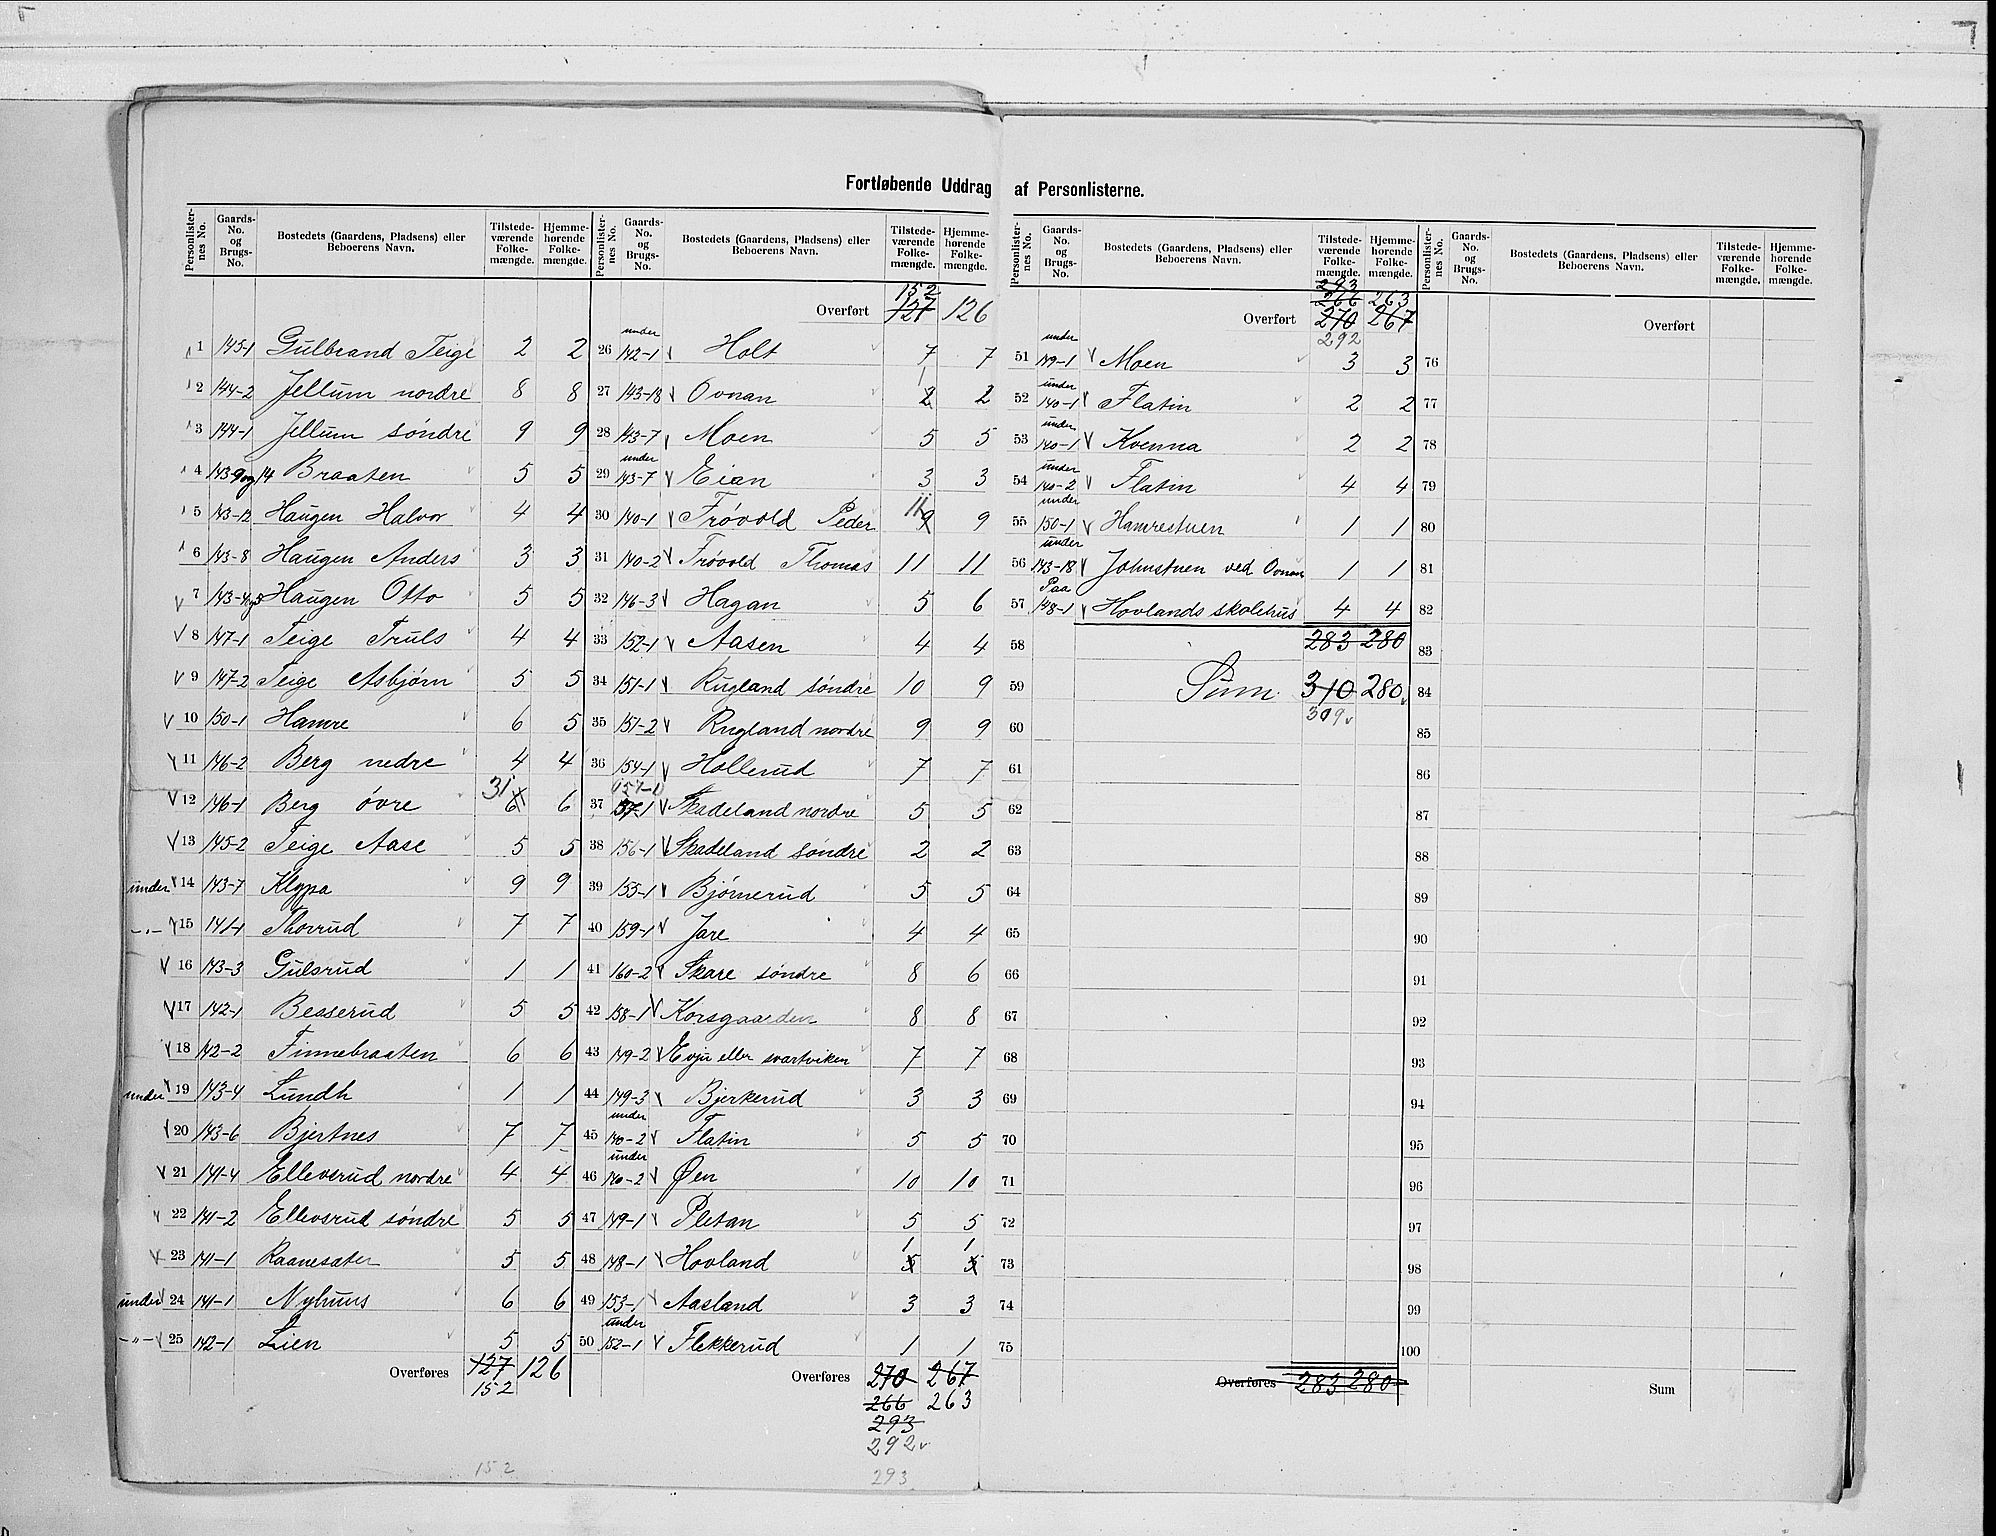 Fortløbende Uddrag af Personlisterne.
Personlisternes No. Gaards-No. og Brugs-No. Bostedets (Gaardens, Pladsens) eller Beboerens Navn. Tilstedeværende Folkemængde. Hjemmehørende Folkemængde.
1 145-1 Gulbrand Teige 2 2
2 144-2 Jellum nordre 8 8
3 144-1 Jellum søndre 9 9
4 143-9 og 14 Braaten 5 5
5 143-12 Haugen Halvor 4 4
6 143-8 Haugen Anders 3 3
7 143-4 og 5 Haugen Otto 5 5
8 147-1 Teige Truls 4 4
9 147-2 Teige Asbjørn 5 5
10 150-1 Hamre 6 5
11 146-2 Berg nedre 4 4
12 146-1 Berg øvre 31 6 6
13 145-2 Teige Aase 5 5
under 14 143-7 Klypa 9 9
-"- 15 141-1 Thorrud 7 7
16 143-3 Gulsrud 1 1
17 142-1 Besserud 5 5
18 142-2 Finnebraaten 6 6
under 19 143-4 Lundh 1 1
20 143-6 Bjertnes 7 7
21 141-4 Ellevsrud nordre 4 4
22 141-2 Ellevsrud søndre 5 5
23 141-1 Raanesater 5 5
under 24 141-1 Nyhuus 6 6
-"- 25 142-1 Lien 5 5
Overføres 127 126
152
152
Personlisternes No. Gaards-No. og Brugs-No. Bostedets (Gaardens, Pladsens) eller Beboerens Navn. Tilstedeværende Folkemængde. Hjemmehørende Folkemængde.
152
Overført 127 126
under
26 142-1 Holt 7 7
27 143-18 Ovnan 1 2 2
28 143-7 Moen 5 5
under
29 143-7 Eian 3 3
30 140-1 Trøvold Peder 11 9 9
31 140-2 Trøvold Thomas 11 11
32 146-3 Hagan 5 6
33 152-1 Aasen 4 4
34 151-1 Rugland søndre 10 9
35 151-2 Rugland nordre 9 9
36 154-1 Hollerud 7 7
157-1
37 57-1 Skadeland nordre 5 5
38 156-1 Skadeland søndre 2 2
39 155-1 Bjørnerud 5 5
40 159-1 Jare 4 4
41 160-2 Skare søndre 8 6
42 158-1 Korsgaarden 8 8
43 149-2 Evju eller svartviken 7 7
44 149-3 Bjerkerud 3 3
under
45 140-2 Flatin 5 5
under
46 140-2 Øen 10 10
47 149-1 Pletan 5 5
1 1
48 148-1 Hovland 5 5
49 153-1 Aasland 3 3
under
50 152-1 Flekkerud 1 1
Overføres 270 267
266 263
293
292
293
Personlisternes No. Gaards-No. og Brugs-No. Bostedets (Gaardens, Pladsens) eller Beboerens Navn. Tilstedeværende Folkemængde. Hjemmehørende Folkemængde.
293
266 263
Overført 270 267
292
under
51 149-1 Moen 3 3
under
52 140-1 Flatin 2 2
under
53 140-1 Kvenna 2 2
under
54 140-2 Flatin 4 4
under
55 150-1 Hamrestuen 1 1
under
56 143-18 Johnstuen ved Ovnan 1 1
Paa
57 148-1 Hovlands skolehus 4 4
58 283 280
59 Sum 310 280
309
60
61
62
63
64
65
66
67
68
69
70
71
72
73
74
75
Overføres 283 280
Personlisternes No. Gaards-No. og Brugs-No. Bostedets (Gaardens, Pladsens) eller Beboerens Navn. Tilstedeværende Folkemængde. Hjemmehørende Folkemængde.
Overført
76
77
78
79
80
81
82
83
84
85
86
87
88
89
90
91
92
93
94
95
96
97
98
99
100
Sum